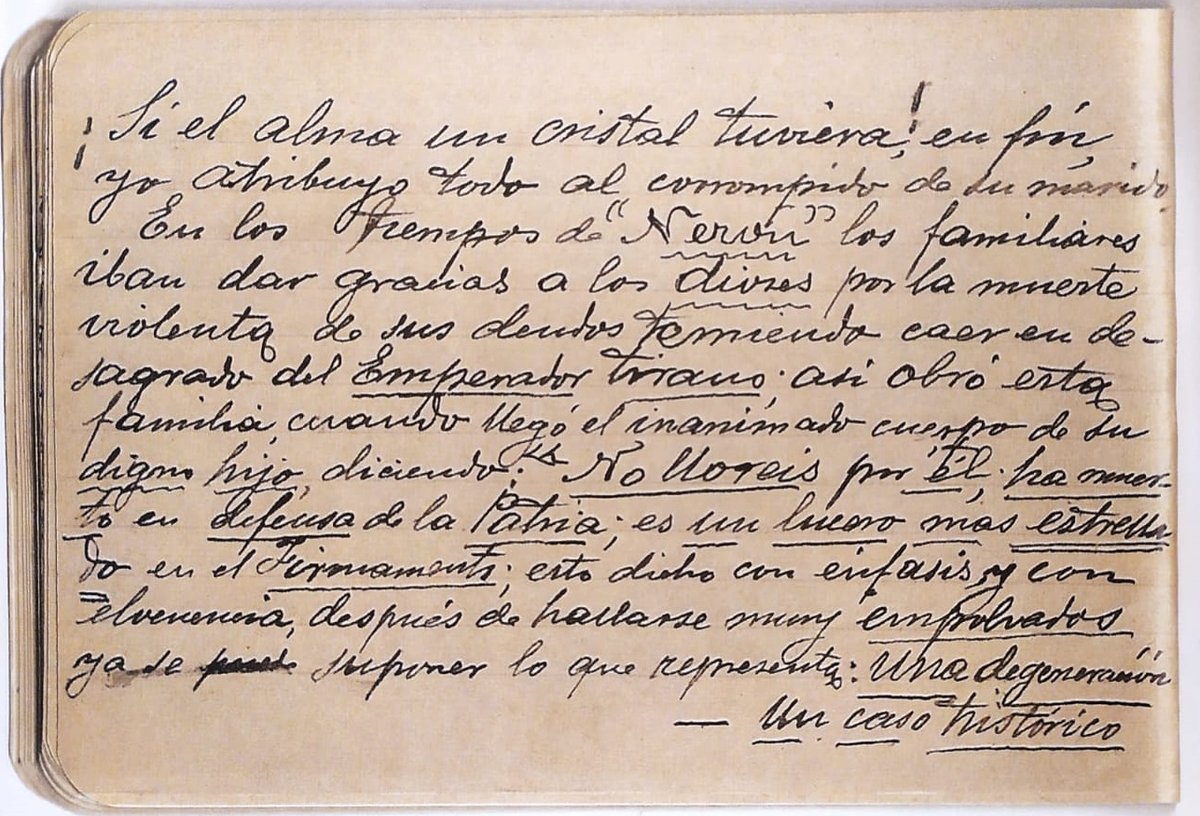 ¡Si el alma un cristal tuviera! en fin,
yo atribuyo todo al corrompido de su marido.
En los tiempos de "Nerón" los familiares
iban dar gracias a los dioses por la muerte
violenta de sus deudos temiendo caer en de-
sagrado del Emperador tirano; asi obró esta
familia, cuando llegó el inanimado cuerpo de su
digno hijo, diciendo: No lloreis por él; ha muer-
to en defensa de la Patria; es un lucero mas estrella
do en el Firmamento; esto dicho con énfasis y con
elocuencia, después de hallarse muy empolvados
ya se suponer lo que representa: Una degeneración
— Un caso histórico